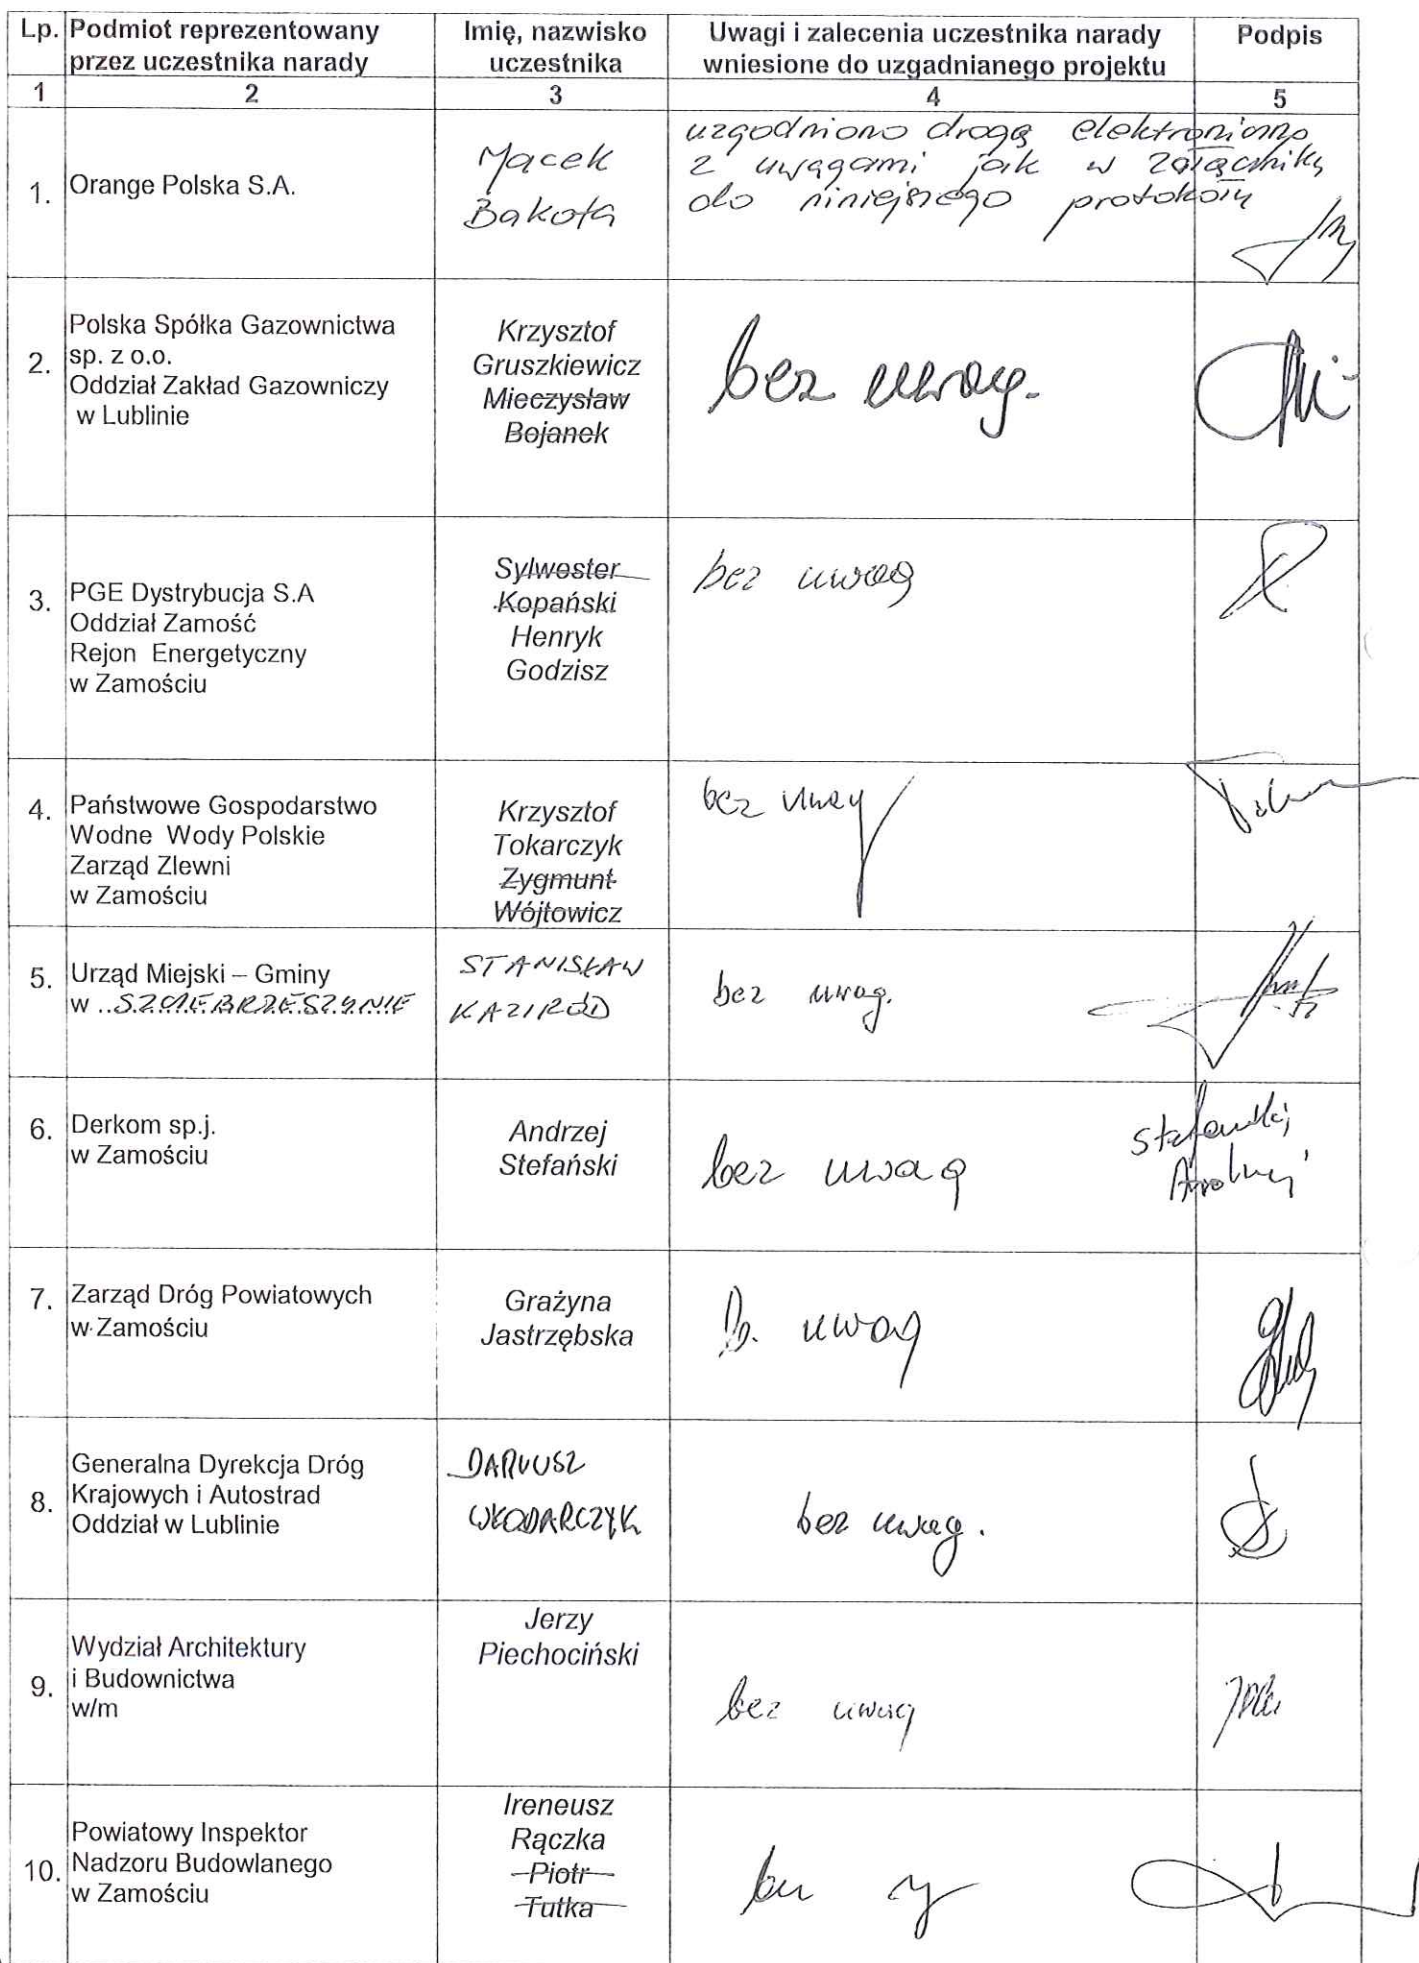 Lp. Podmiot reprezentowany przez uczestnika narady Imię, nazwisko uczestnika Uwagi i zalecenia uczestnika narady wniesione do uzgadnianego projektu Podpis
1 2 3 4 5
1. Orange Polska S.A.
Macek
Bakota
uzgodniono drogą elektroniczną
z uwagami jak w załączniku
do niniejszego protokołu
2.
Polska Spółka Gazownictwa
sp. z o.o.
Oddział Zakład Gazowniczy
w Lublinie
Krzysztof
Gruszkiewicz
Mieczysław
Bojanek
bez uwag.
3.
PGE Dystrybucja S.A
Oddział Zamość
Rejon Energetyczny
w Zamościu
Sylwester
Kopański
Henryk
Godzisz
bez uwag
4.
Państwowe Gospodarstwo
Wodne Wody Polskie
Zarząd Zlewni
w Zamościu
Krzysztof
Tokarczyk
Zygmunt
Wójtowicz
bez uwag
5.
Urząd Miejski – Gminy
w ..SZCZEBRZESZYNIE
STANISŁAW
KAZIRÓD
bez uwag.
6.
Derkom sp.j.
w Zamościu
Andrzej
Stefański
bez uwag
Stefański
Andrzej
7.
Zarząd Dróg Powiatowych
w Zamościu
Grażyna
Jastrzębska
b. uwag
8.
Generalna Dyrekcja Dróg
Krajowych i Autostrad
Oddział w Lublinie
DARIUSZ
WŁODARCZYK
bez uwag.
9.
Wydział Architektury
i Budownictwa
w/m
Jerzy
Piechociński
bez uwag
10.
Powiatowy Inspektor
Nadzoru Budowlanego
w Zamościu
Ireneusz
Rączka
Piotr
Tutka